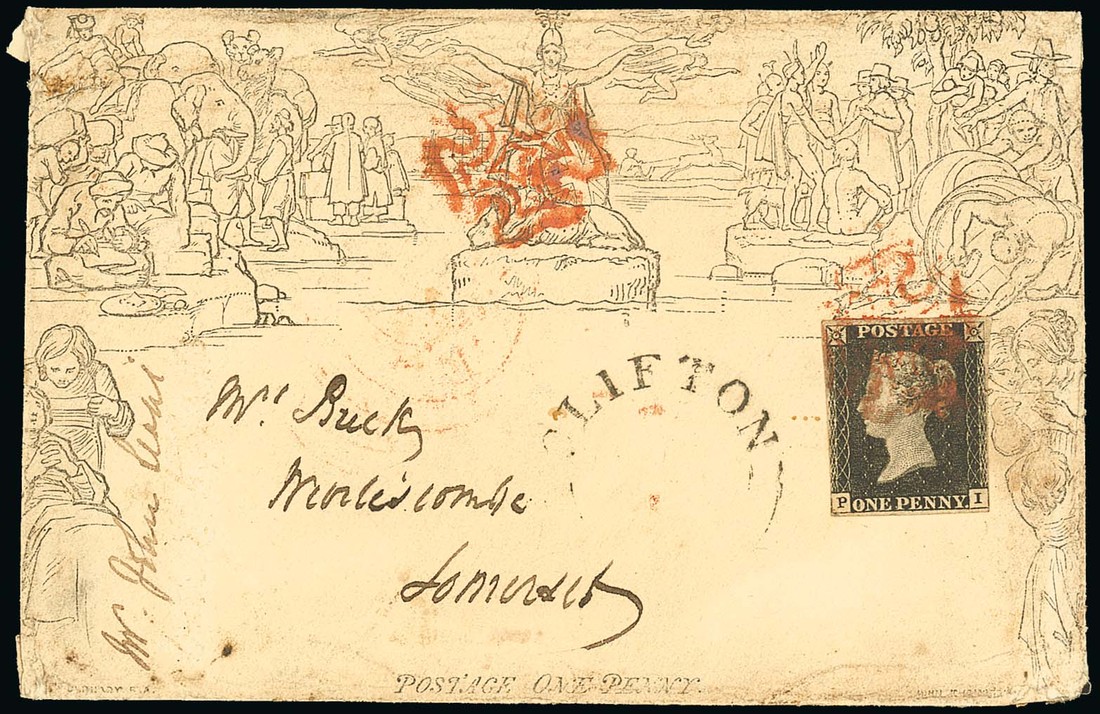 CLIFTON
POSTAGE
P ONE PENNY I
Mr. Buck
Somerset
Mr. John
POSTAGE ONE PENNY.